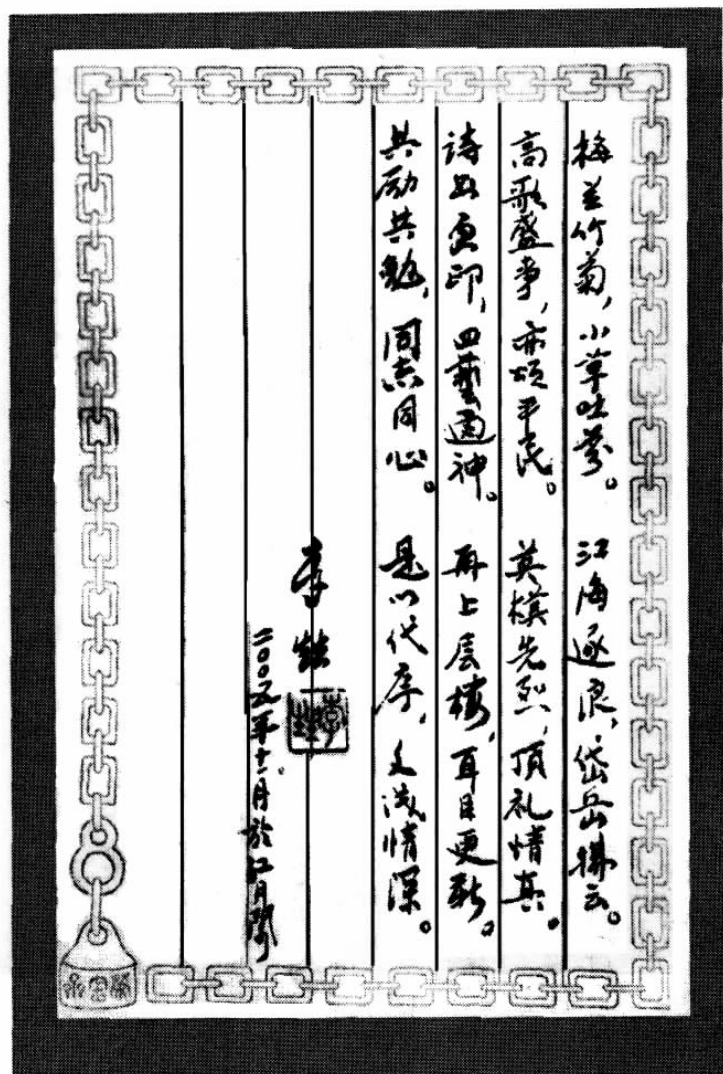 梅兰竹菊，小草吐芬。江海逐浪，岱岳拂云。
高歌盛事，亦颂平民。英模先烈，顶礼情真。
詩书画印，四藝通神。再上层楼，耳目更新。
共励共勉，同志同心。是以代序，文浅情深。
李
二〇〇五年十二月於江月